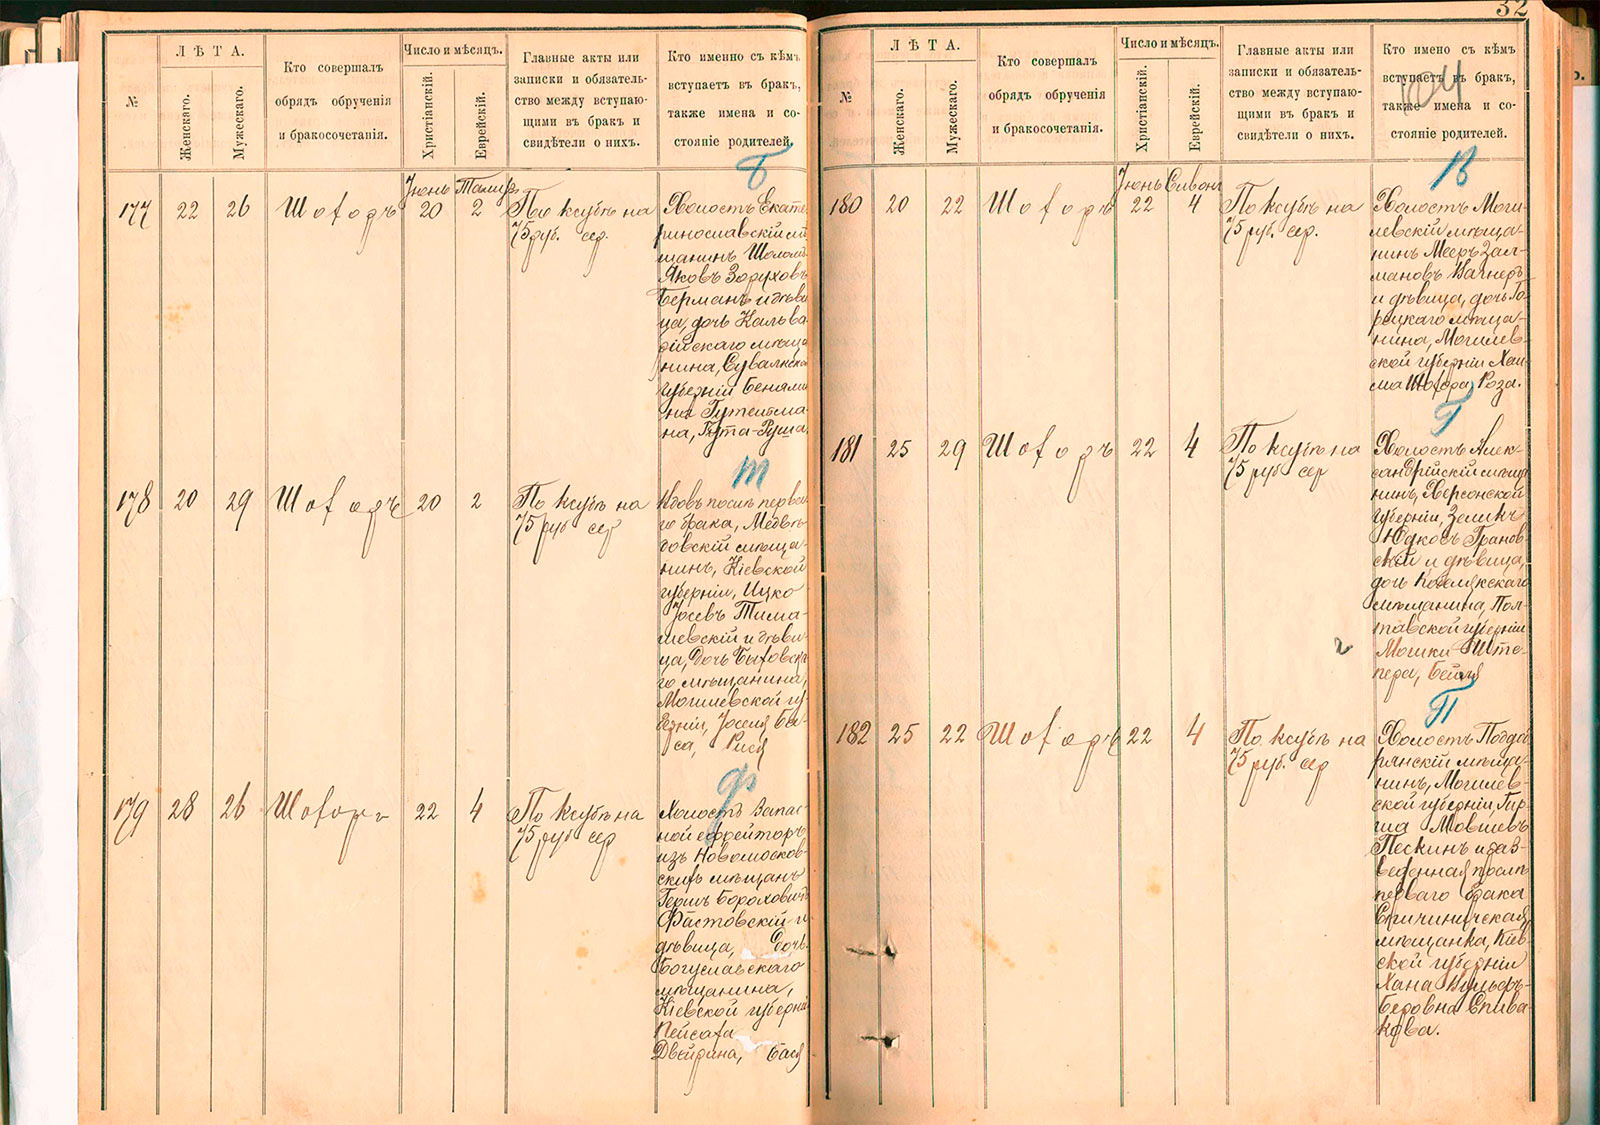 32
104
Л Ѣ Т А.
№
Женскаго.
Мужескаго.
Кто совершалъ
обрядъ обрученія
и бракосочетанія.
Число и мѣсяцъ.
Христіанскій.
Еврейскій.
Главные акты или
записки и обязатель-
ство между вступаю-
щими въ бракъ и
свидѣтели о нихъ.
Кто именно съ кѣмъ
вступаетъ въ бракъ,
также имена и со-
стояніе родителей.
Б
Іюнь Тамузъ
177 22 26 Шофоръ 20 2
По ксубѣ на
75 руб. сер.
Холостъ Екате-
ринославскій мѣ-
щанинъ Шоломъ
Яковъ Зоруховъ
Берманъ и дѣви-
ца, дочь Кальва-
рійскаго мѣща
нина, Сувалкской
губерніи Беньями
на Гутентма-
на, Гута-Руша
Т
178 20 29 Шофоръ 20 2
По ксубѣ на
75 руб сер
Вдовъ послѣ перва-
го брака, Медвѣ-
довскій мѣща-
нинъ, Кіевской
губерніи, Ицко
Іосевъ Тима-
шевскій и дѣви-
ца, дочь Быховска
го мѣщанина,
Могилевской гу-
берніи, Іоселя Ба-
са, Рися
Ф
179 28 26 Шофоръ 22 4
По ксубѣ на
75 руб сер
Холостъ Запас
ной ефрейторъ
изъ Новомосков-
скихъ мѣщанъ
Гершъ Бороховичъ
Фастовскій и
дѣвица, дочь
Богуславскаго
мѣщанина,
Кіевской губерніи
Пейсаха
Двейрина, Бася
Л Ѣ Т А.
№
Женскаго.
Мужескаго.
Кто совершалъ
обрядъ обрученія
и бракосочетанія.
Число и мѣсяцъ.
Христіанскій.
Еврейскій.
Главные акты или
записки и обязатель-
ство между вступаю-
щими въ бракъ и
свидѣтели о нихъ.
Кто имено съ кѣмъ
вступаетъ въ бракъ,
также имена и со-
стояніе родителей.
В
Іюнь Сивонъ
180 20 22 Шофоръ 22 4
По ксубѣ на
75 руб. сер.
Холостъ Моги-
левскій мѣща-
нинъ Мееръ Зал-
мановъ Вагнеръ
и дѣвица, дочь Го-
рецкаго мѣща-
нина, Могилев-
ской губерніи Хаи-
ма Шофора, Роза.
Г
181 25 29 Шофоръ 22 4
По ксубѣ на
75 руб сер
Холостъ Алек-
сандрійскій мѣща
нинъ, Херсонской
губерніи, Зеликъ
Юдковъ Гранов-
скій и дѣвица,
дочь Кобелякскаго
мѣщанина, Пол-
тавской губерніи
Мошки Штe-
пера, Бейля
П
182 25 22 Шофоръ 22 4
По ксубѣ на
75 руб. сер
Холостъ Поддоб
рянскій мѣща-
нинъ, Могилев-
ской губерніи, Гир-
ша Мовшевъ
Пескинъ и раз-
веденная послѣ
перваго брака
мѣщанка, Кіев-
ской губерніи
Хана Вульфъ-
Беровна Спива-
кова.